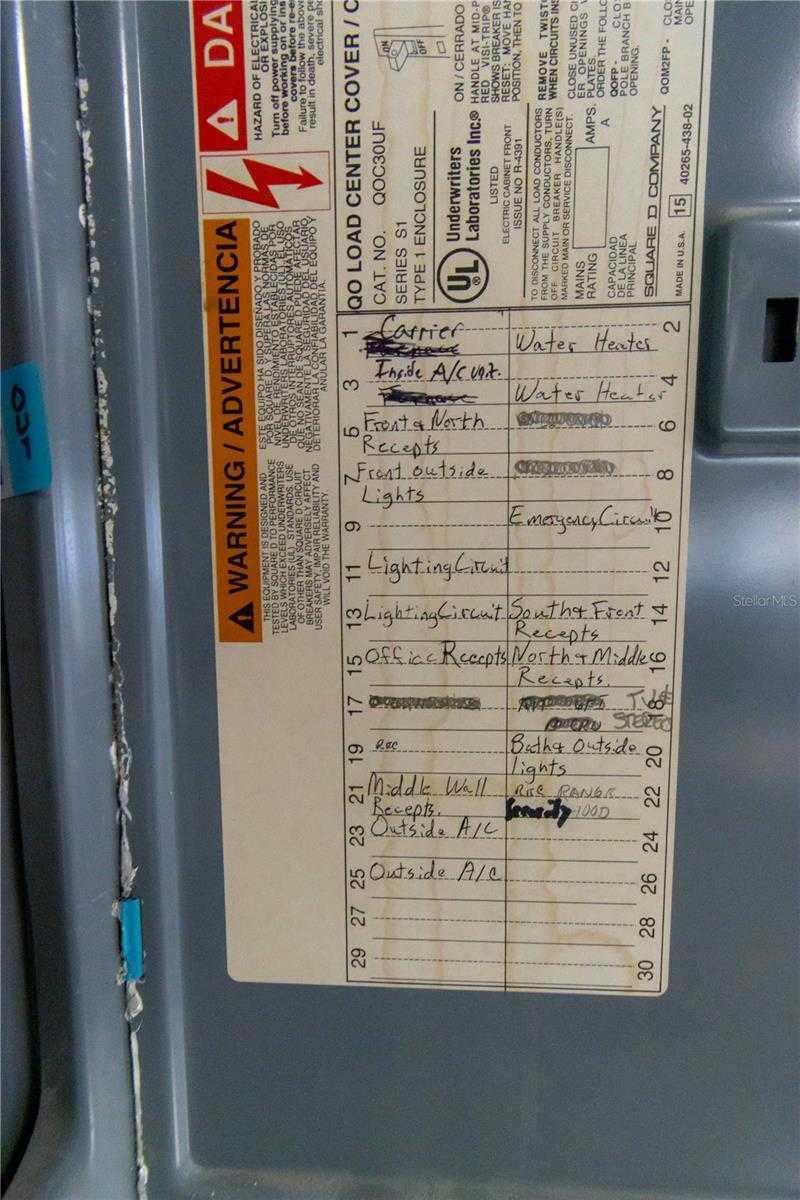 DA
HAZARD OF ELECTRICAL
OR EXPLOSI
Turn off power supplying
before working on or ins
covers before re-e
Failure to follow the above
result in death, severe pe
electrical sho
WARNING / ADVERTENCIA
THIS EQUIPMENT IS DESIGNED AND
TESTED BY SQUARE D TO PERFORMANCE
LEVELS WHICH EXCEED UNDERWRITERS
LABORATORIES (UL) STANDARDS. USE
OF OTHER THAN SQUARE D CIRCUIT
BREAKERS MAY ADVERSELY AFFECT
USER SAFETY, IMPAIR RELIABILITY AND
WILL VOID THE WARRANTY.
ESTE EQUIPO HA SIDO DISEÑADO Y PROBADO
POR SQUARE D Y SUPERA LAS NORMAS DE
NIVEL DE RENDIMIENTO ESTABLECIDAS POR
UNDERWRITERS LABORATORIES (UL). EL USO
DE OTROS INTERRUPTORES AUTOMATICOS
QUE NO SEAN DE SQUARE D PUEDE AFECTAR
NEGATIVAMENTE LA SEGURIDAD DEL USUARIO,
DETERIORAR LA CONFIABILIDAD DEL EQUIPO Y
ANULAR LA GARANTIA.
QO LOAD CENTER COVER / C
CAT. NO. QOC30UF
SERIES S1
TYPE 1 ENCLOSURE
UL
Underwriters
Laboratories Inc.®
LISTED
ELECTRIC CABINET FRONT
ISSUE NO R-4391
ON
OFF
ON / CERRADO
HANDLE AT MID-P
RED VISI-TRIP®
SHOWS BREAKER IS
RESET: MOVE HA
POSITION, THEN TO
TO DISCONNECT ALL LOAD CONDUCTORS
FROM THE SUPPLY CONDUCTORS, TURN
OFF CIRCUIT BREAKER HANDLE(S)
MARKED MAIN OR SERVICE DISCONNECT.
MAINS
RATING
AMPS.
A
CAPACIDAD
DE LA LINEA
PRINCIPAL
REMOVE TWISTO
WHEN CIRCUITS INS
CLOSE UNUSED CI
ER OPENINGS
PLATES.
ORDER THE FOLLO
QOFP - CL
POLE BRANCH B
OPENING.
QOM2FP - CLO
MAIN
OPE
SQUARE D COMPANY
MADE IN U.S.A.
15
40265-438-02
1 Carrier
Water Heater 2
3 Inside A/C unit.
Water Heater 4
5 Front & North
Recepts
6
7 Front outside
Lights
8
9
Emergency Circuit 10
11 Lighting Circuit
12
13 Lighting Circuit
South & Front 14
Recepts
15 Office Recepts
North & Middle 16
Recepts.
17
TV &
STEREO
18
19 Rec
Bath & Outside 20
lights
21 Middle Wall
Recepts.
REC RANGE 22
HOOD
23 Outside A/C
24
25 Outside A/C
26
27
28
29
30
OUT
StellarMLS